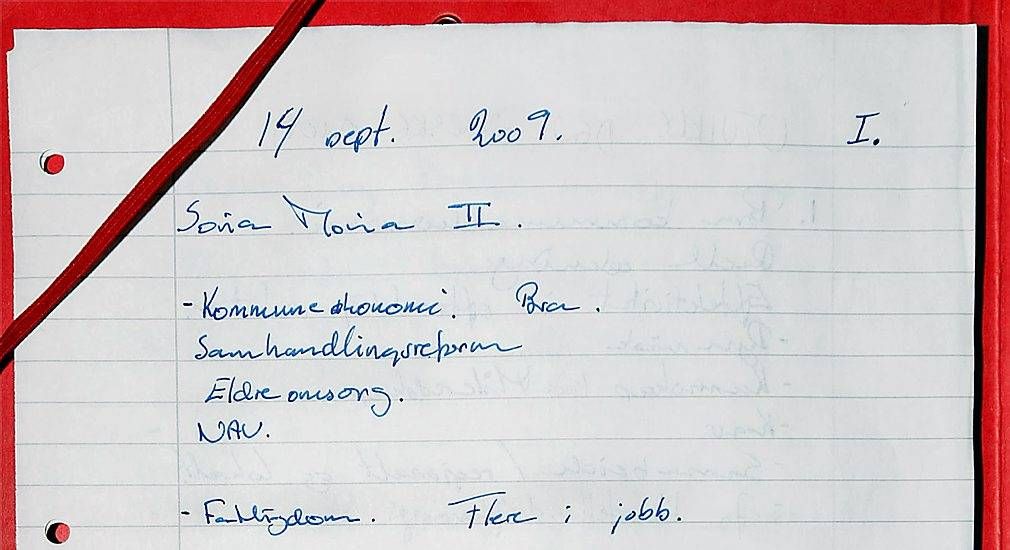 14 sept. 2009. I.
Soria Moria II.
- Kommuneøkonomi. Bra.
Samhandlingsreform
Eldreomsorg.
NAV.
- Fattigdom. Flere i jobb.